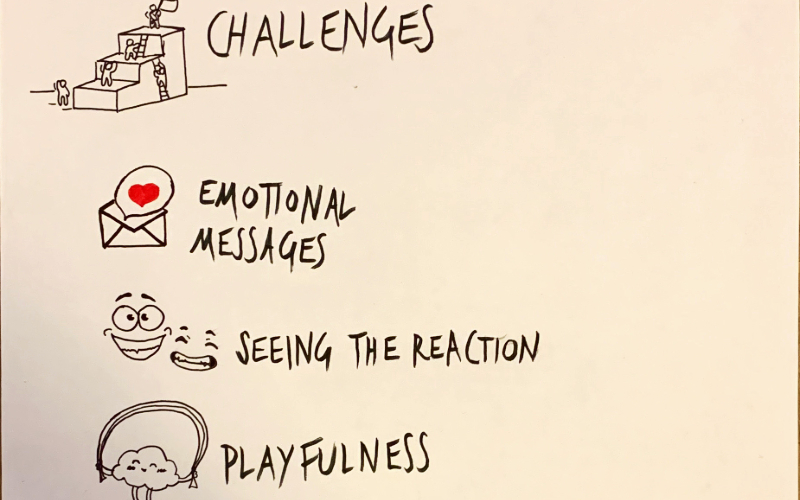 CHALLENGES
EMOTIONAL
MESSAGES
SEEING THE REACTION
PLAYFULNESS